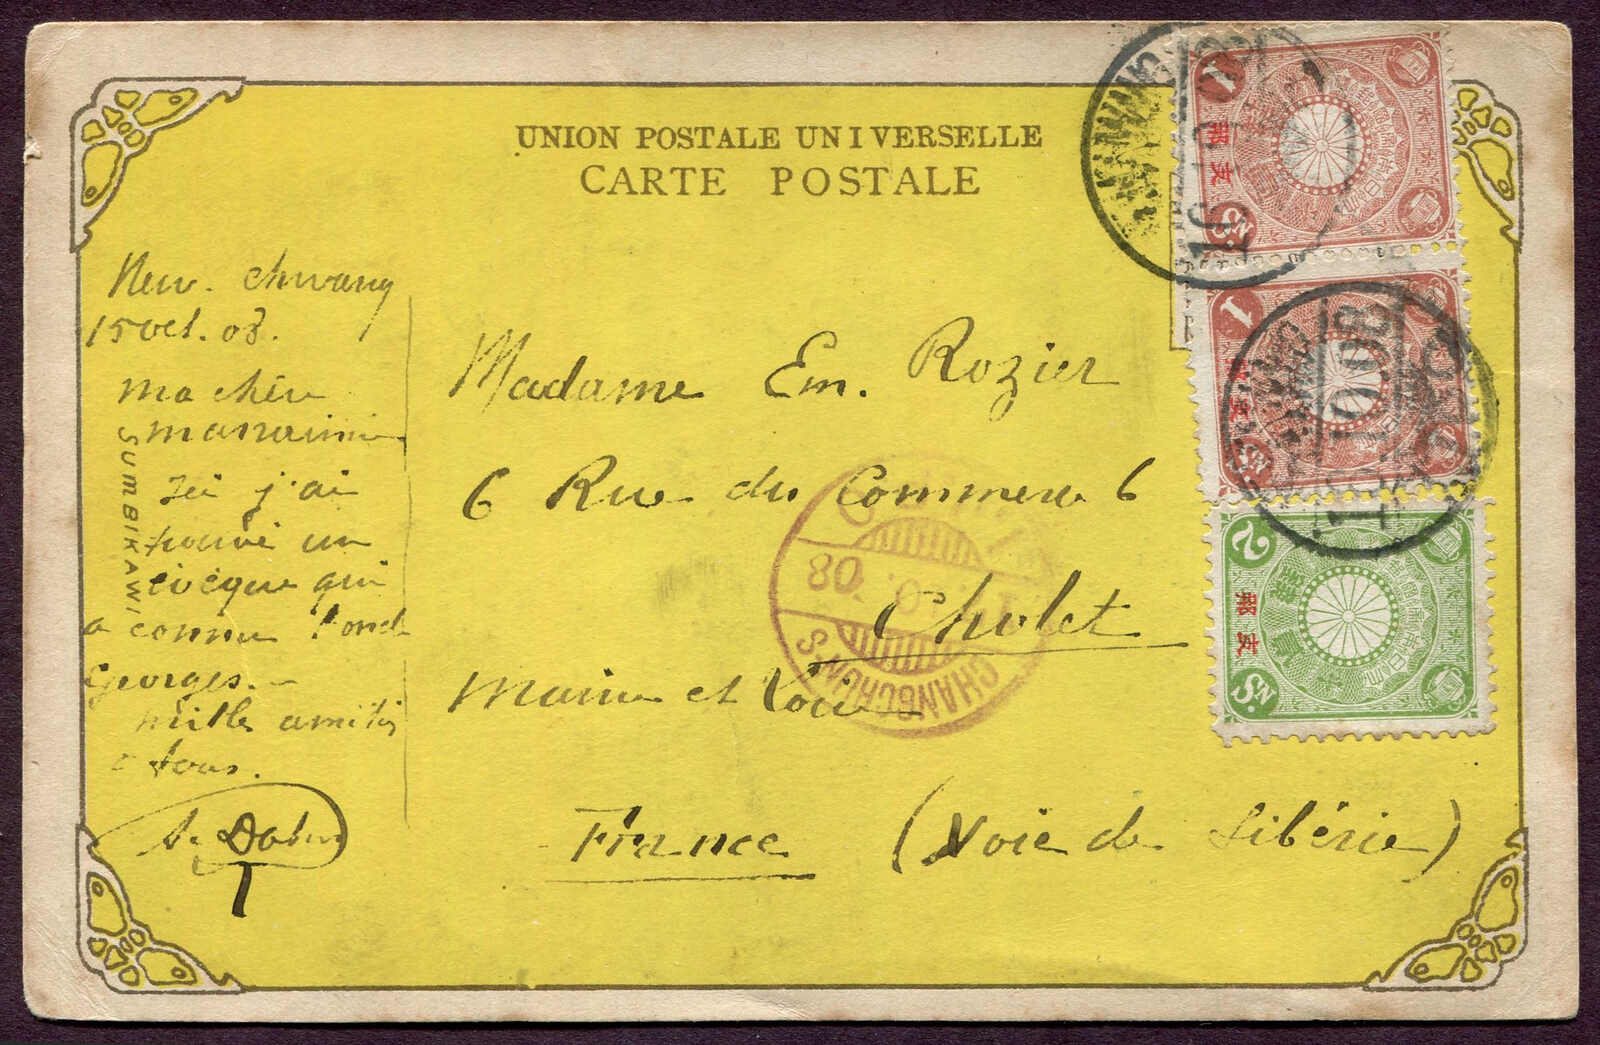 UNION POSTALE UNIVERSELLE
CARTE POSTALE
New. chwang
15 oct. 03.
ma chère
marraine
Ici j'ai
trouvé un
évêque qui
a connu l'oncle
Georges. -
mille amitiés
à tous.
SUMBIKAWI
Madame Em. Rozier
6 Rue du Commerce 6
Cholet
Maine et Loire
France (Voie de Sibérie)
CHANGCHUN
08
支那
1
Sn.
支那
1
Sn.
支那
2
Sn.
16
1008